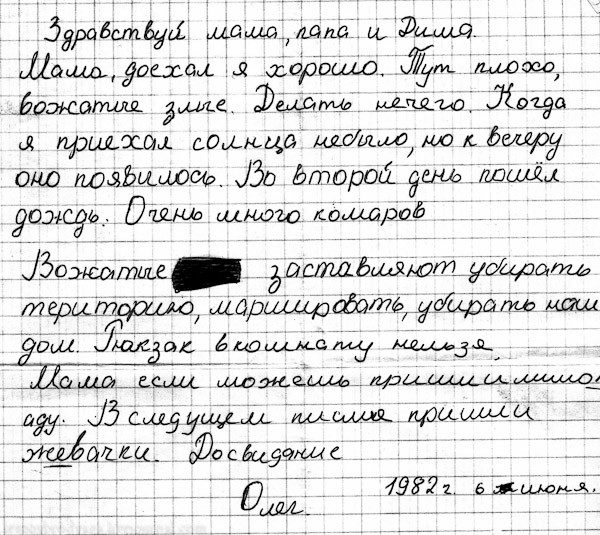 Здравствуй мама, папа и Дима.
Мама, доехал я хорошо. Тут плохо,
вожатые злые. Делать нечего. Когда
я приехал солнца небыло, но к вечеру
оно появилось. Во второй день пошёл
дождь. Очень много комаров
Вожатые заставляют убирать
територию, маршировать, убирать наш
дом. Рюкзак в комнату нельзя.
Мама если можешь пришли лимо
аду. В следущем письме пришли
жевачки. Досвидание
Олег. 1982 г. 6 июня.